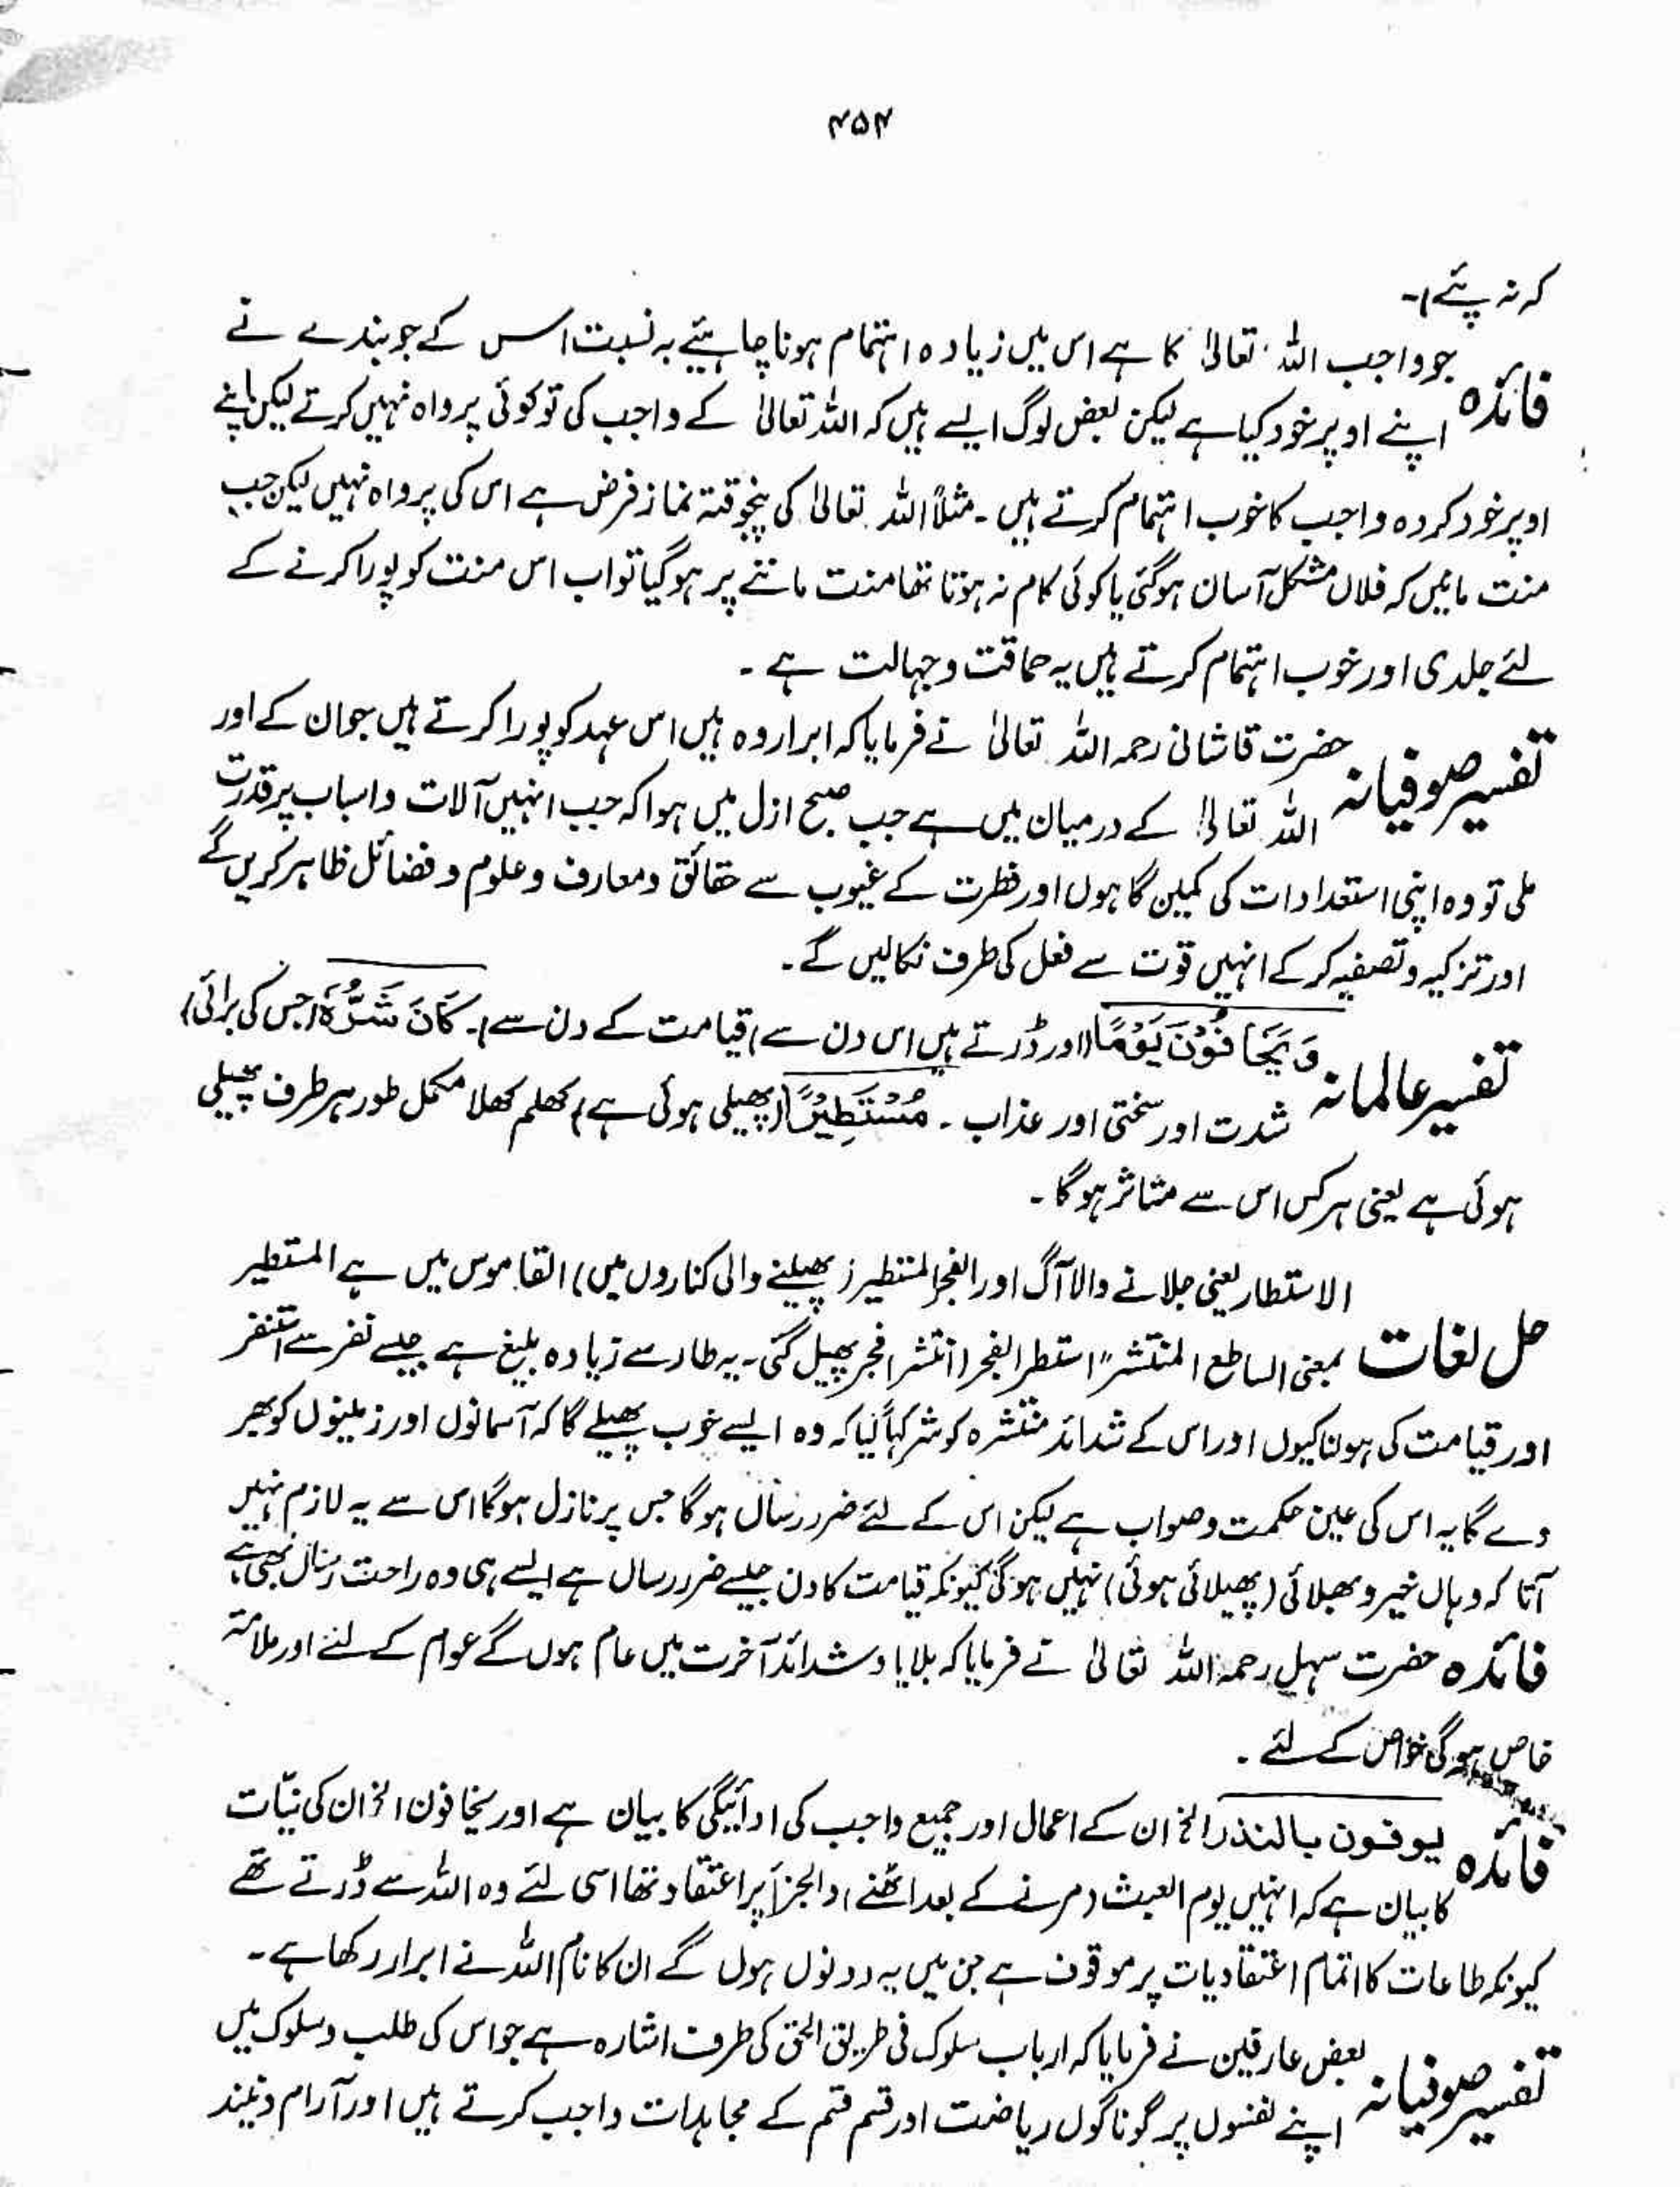 ۴۵۴
کہ نہ پئے)۔
فائدہ جو واجب اللہ تعالیٰ کا ہے اس میں زیادہ اہتمام ہونا چاہیئے بہ نسبت اس کے جو بندے نے
اپنے اوپر خود کیا ہے لیکن بعض لوگ ایسے ہیں کہ اللہ تعالیٰ کے واجب کی تو کوئی پرواہ نہیں کرتے لیکن اپنے
اوپر خود کردہ واجب کا خوب اہتمام کرتے ہیں۔ مثلاً اللہ تعالیٰ کی پنجوقتہ نماز فرض ہے اس کی پرواہ نہیں لیکن جب
منت مانیں کہ فلاں مشکل آسان ہوگئی یا کوئی کام نہ ہوتا تھا منت ماننے پر ہوگیا تو اب اس منت کو پورا کرنے کے
لئے جلدی اور خوب اہتمام کرتے ہیں یہ حماقت و جہالت ہے۔
تفسیر صوفیانہ حضرت قاشانی رحمہ اللہ تعالیٰ نے فرمایا کہ ابرار وہ ہیں اس عہد کو پورا کرتے ہیں جو ان کے اور
اللہ تعالیٰ کے درمیان میں ہے جب صبح ازل میں ہوا کہ جب انہیں آلات و اسباب پر قدرت
ملی تو وہ اپنی استعدادات کی کمین گاہوں اور فطرت کے غیوب سے حقائق و معارف و علوم و فضائل ظاہر کریں گے
اور تزکیہ و تصفیہ کر کے انہیں قوت سے فعل کی طرف نکالیں گے۔
تفسیر عالمانہ وَ یَخَافُوْنَ یَوْمًا (اور ڈرتے ہیں اس دن سے) قیامت کے دن سے)۔ کَانَ شَرُّہٗ (جس کی برائی)
شدت اور سختی اور عذاب۔ مُسْتَطِیْرًا (پھیلی ہوئی ہے) کھلم کھلا مکمل طور ہر طرف پھیلی
ہوئی ہے یعنی ہر کس اس سے متاثر ہوگا۔
الاستطار یعنی جلانے والا آگ اور الفجر المنتطیر (پھیلنے والی کناروں میں) القاموس میں ہے المستطیر
حل لغات بمعنی الساطع المنتشر" استطر الفجر (انتشر) فجر پھیل گئی۔ یہ طار سے زیادہ بلیغ ہے جیسے نفر سے استنفر
اور قیامت کی ہولناکیوں اور اس کے شدائد منتشرہ کو شر کہا گیا کہ وہ ایسے خوب پھیلے گا کہ آسمانوں اور زمینوں کو بھر
دے گا یہ اس کی عین حکمت و صواب ہے لیکن اس کے لئے ضرر رساں ہوگا جس پر نازل ہوگا اس سے یہ لازم نہیں
آتا کہ وہاں خیر و بھلائی (پھیلائی ہوئی) نہیں ہوگی کیونکہ قیامت کا دن جیسے ضرر رساں ہے ایسے ہی وہ راحت رساں بھی ہے
فائدہ حضرت سہل رحمہ اللہ تعالیٰ نے فرمایا کہ بلایا و شدائد آخرت میں عام ہوں گے عوام کے لئے اور
خاص ہوگی خواص کے لئے۔
فائدہ یوفون بالنذر الخ ان کے اعمال اور جمیع واجب کی ادائیگی کا بیان ہے اور یخافون الخ ان کی نیّات
کا بیان ہے کہ انہیں یوم البعث (مرنے کے بعد اٹھنے) والجزأ پر اعتقاد تھا اسی لئے وہ اللہ سے ڈرتے تھے
کیونکہ طاعات کا اتمام اعتقادیات پر موقوف ہے جن میں یہ دونوں ہوں گے ان کا نام اللہ نے ابرار رکھا ہے۔
تفسیر صوفیانہ بعض عارفین نے فرمایا کہ ارباب سلوک فی طریق الحق کی طرف اشارہ ہے جو اس کی طلب و سلوک میں
اپنے نفسوں پر گوناگوں ریاضت اور قسم قسم کے مجاہدات واجب کرتے ہیں اور آرام و نیند